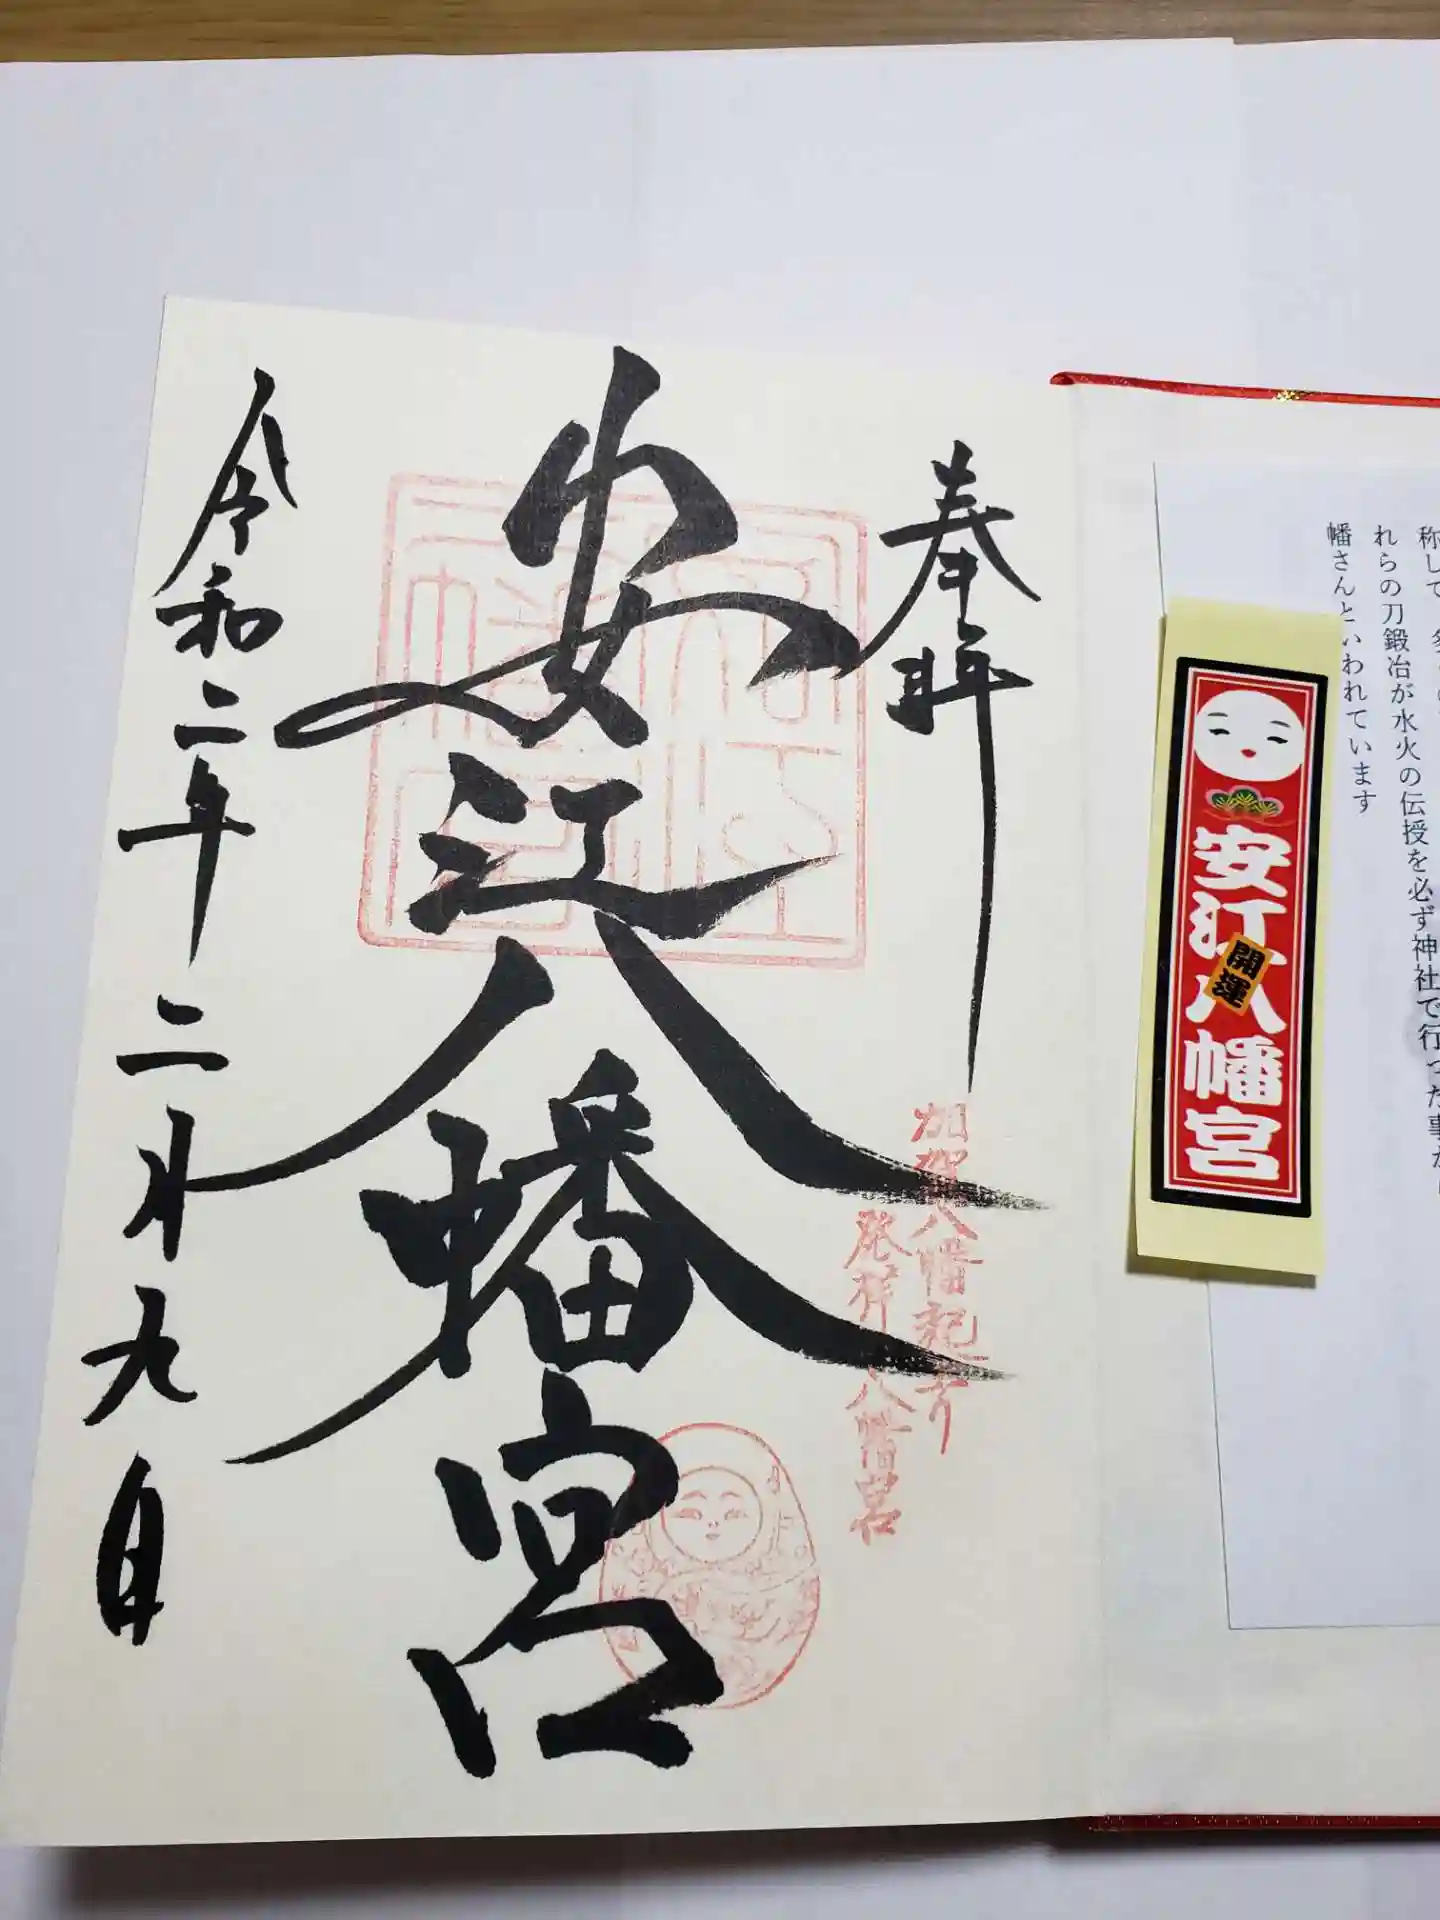 称して
れらの刀鍛冶が水火の伝授を必ず神社で行った事か
幡さんといわれています
安江八幡宮
開運
奉拝
加賀八幡起上り
発祥 八幡宮
安江八幡宮
令和二年 二月九日